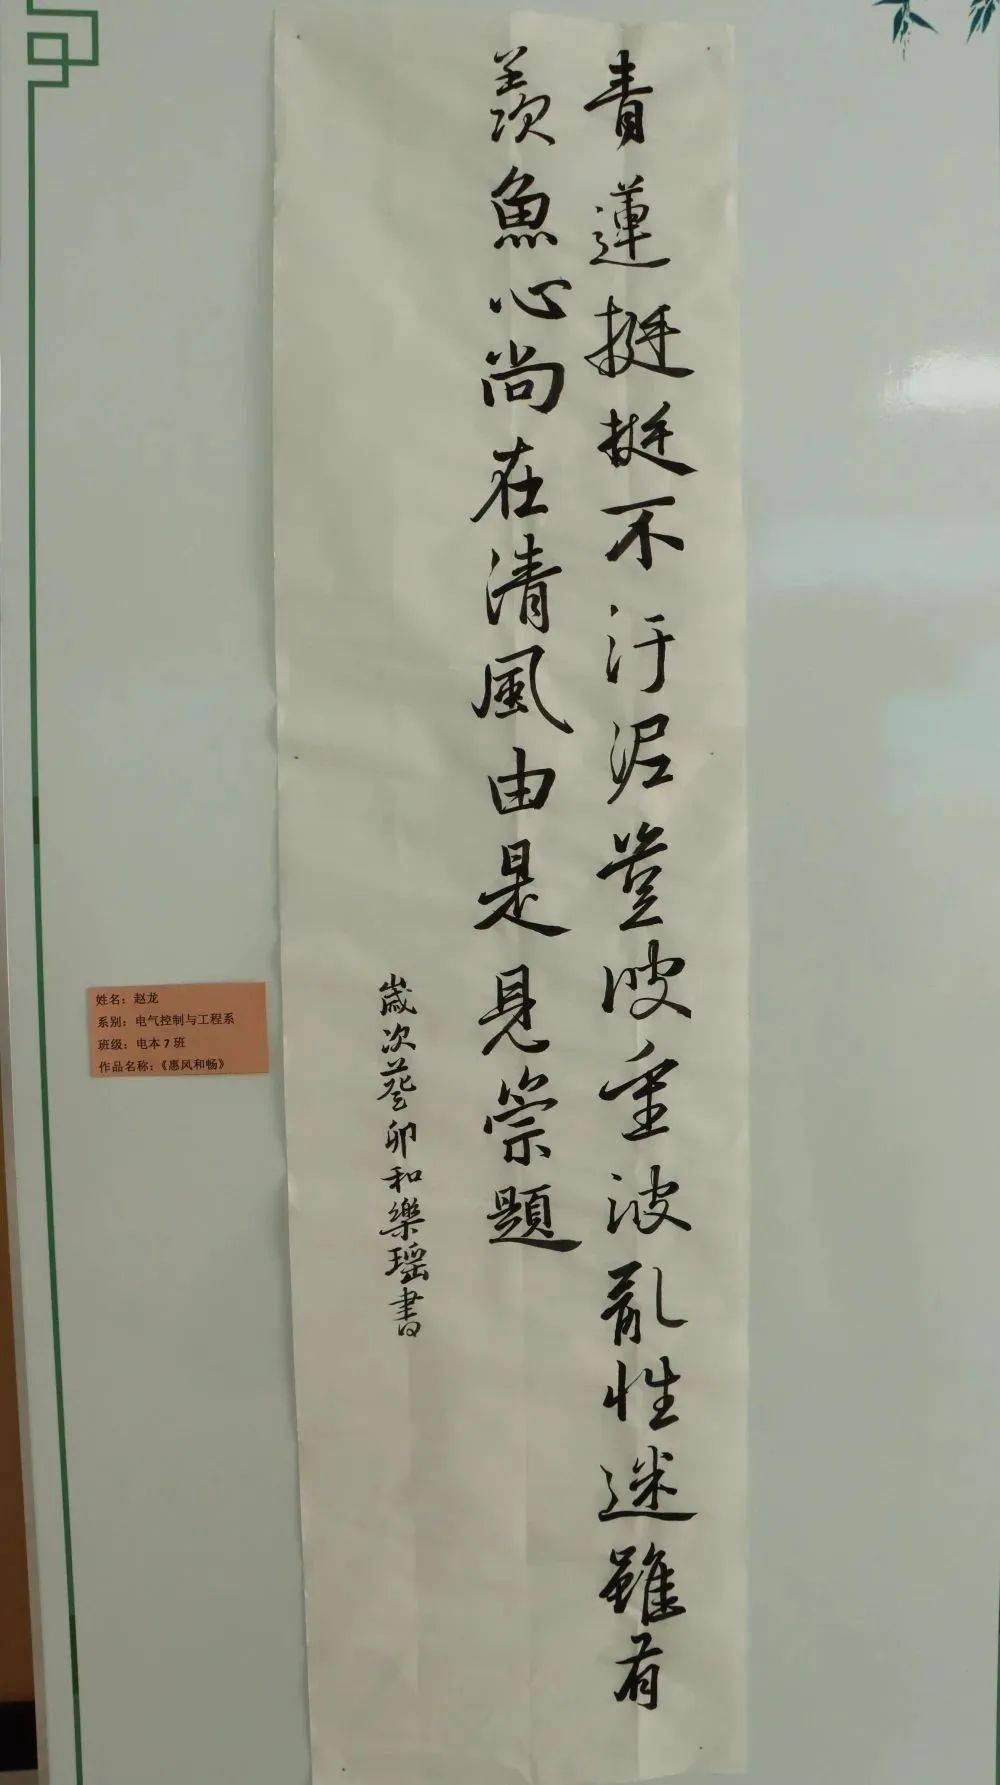 青蓮挺挺不汙泥豈被重波亂性迷雖有
羨魚心尚在清風由是見崇題
歲次癸卯和樂瑶書
姓名：赵龙
系别：电气控制与工程系
班级：电本7班
作品名称：《惠风和畅》